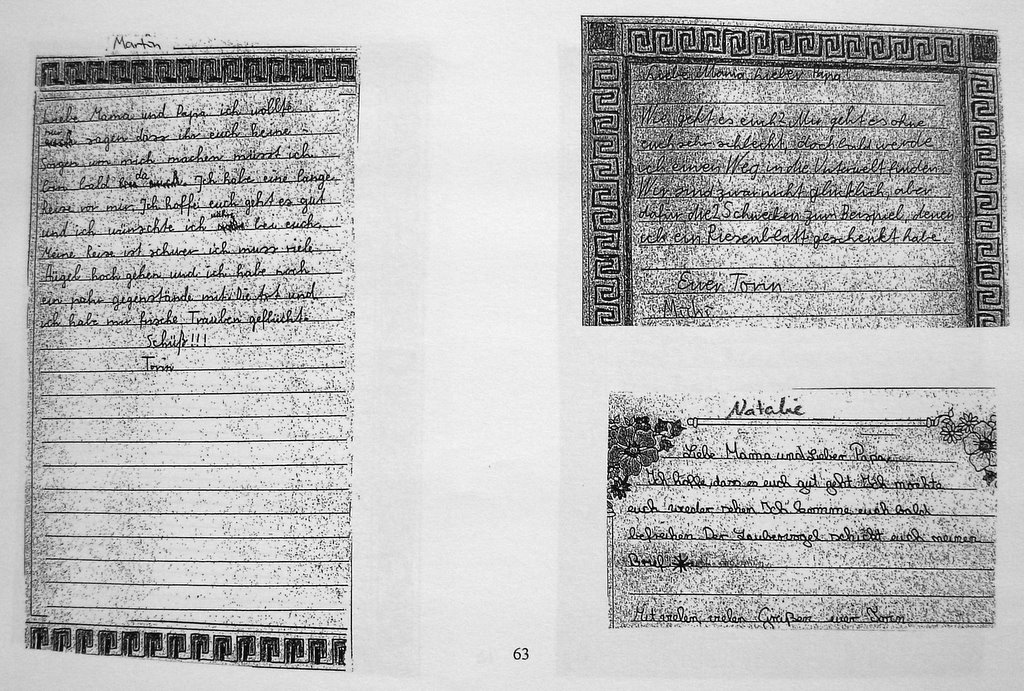 Martin
Liebe Mama und Papa ich wollte
nur sagen dass ihr euch keine
Sorgen um mich machen müsst ich
bin bald da. Ich habe eine lange
Reise vor mir. Ich hoffe euch geht es gut
und ich wünschte ich wäre bei euch.
Meine Reise ist schwer ich muss viele
Hügel hoch gehen und ich habe noch
ein pahr gegenstände mit. Die Axt und
ich habe mir frische Trauben geflückt.
Schüß!!!
Torin
Liebe Mama, Lieber Papa
Wie geht es euch? Mir geht es ohne
euch sehr schlecht, doch bald werde
ich einen Weg in die Unterwelt finden.
Wir sind zwar nicht glücklich, aber
dafür die 2 Schnecken zum Beispiel, denen
ich ein Riesenblatt geschenkt habe.
Euer Torin
Michi
Natalie
Liebe Mama und Lieber Papa,
Ich hoffe, dass es euch gut geht. Ich möchte
euch wieder sehen. Ich komme euch bald
befreihen. Der Zaubervogel schickt euch meinen
Brief
Mit vielen, vielen Grüßen euer Torin
63